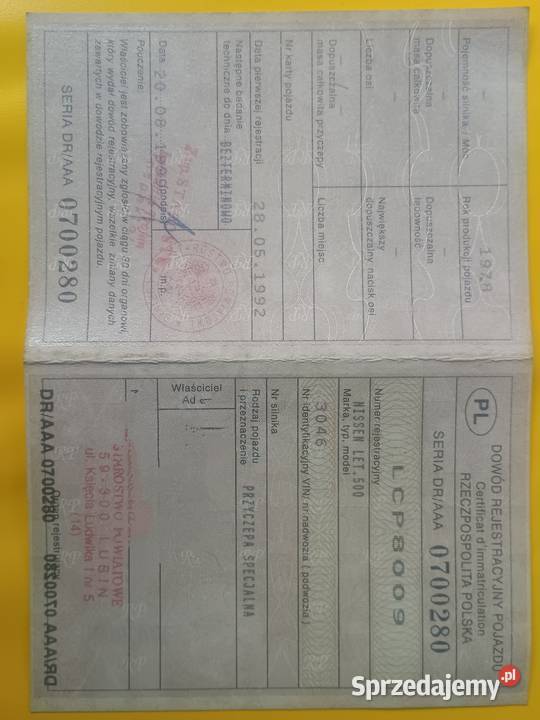 PL
DOWÓD REJESTRACYJNY POJAZDU
Certificat d'immatriculation
RZECZPOSPOLITA POLSKA
SERIA DR/AAA 0700280
Numer rejestracyjny
LCP8009
Marka, typ, model
NISSEN LET.500
Nr identyfikacyjny VIN/ nr nadwozia (podwozia)
3046
Nr silnika
Rodzaj pojazdu
i przeznaczenie
PRZYCZEPA SPECJALNA
Właściciel
STAROSTWO POWIATOWE
59-300 LUBIN
ul. Księcia Ludwika I nr 5
(14)
DR/AAA 0700280
DR/AAA 0700280
Pojemność silnika / Moc
Rok produkcji pojazdu
1978
Dopuszczalna
masa całkowita
Dopuszczalna
ładowność
Liczba osi
Największy
dopuszczalny nacisk osi
Dopuszczalna
masa całkowita przyczepy
Liczba miejsc
Nr karty pojazdu
Data pierwszej rejestracji
28.05.1992
Następne badanie
techniczne do dnia
BEZTERMINOWO
Data
(podpis)
m.p.
Pouczenie:
Właściciel jest zobowiązany zgłosić w ciągu 30 dni organowi,
który wydał dowód rejestracyjny, wszelkie zmiany danych
zawartych w dowodzie rejestracyjnym pojazdu
SERIA DR/AAA 0700280
Sprzedajemy.pl